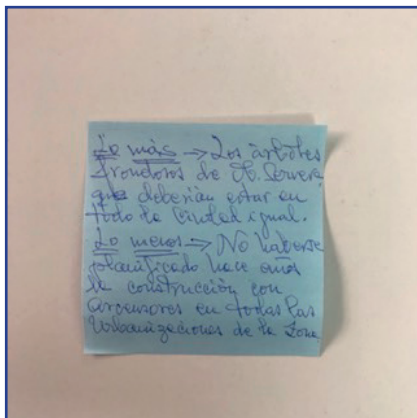 Lo más → Los árboles
frondosos de Sta. Cervera
que deberían estar en
todo la ciudad igual.
Lo menos → No haberse
planificado hace años
la construcción con
ascensores en todas las
urbanizaciones de la zona